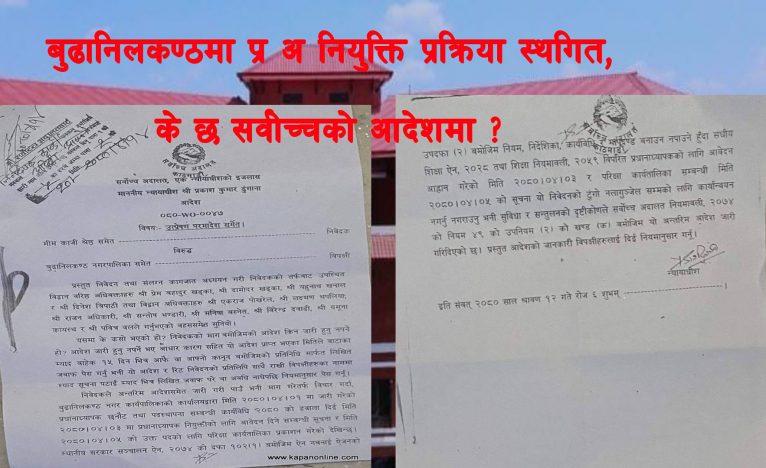 बुढानिलकण्ठमा प्र अ नियुक्ति प्रक्रिया स्थगित,
के छ सर्वोच्चको आदेशमा ?
सर्वोच्च अदालत, एक न्यायाधीशको इजलास
माननीय न्यायाधीश श्री प्रकाश कुमार ढुंगाना
आदेश
०८०-WO-००४७
विषयः- उत्प्रेषण परमादेश समेत।
भीम काजी श्रेष्ठ समेत निवेदक
विरुद्ध
बुढानिलकण्ठ नगरपालिका समेत विपक्षी
प्रस्तुत निवेदन तथा संलग्न कागजात अध्ययन गरी निवेदकको तर्फबाट उपस्थित
विद्वान वरिष्ठ अधिवक्ताहरु श्री प्रेम बहादुर खड्का, श्री दामोदर खड्का, श्री यदुनाथ खनाल
र श्री दिनेश त्रिपाठी तथा विद्वान अधिवक्ताहरु श्री एकराज पोखरेल, श्री लक्ष्मण थपलिया,
श्री राजन अधिकारी, श्री सन्तोष भण्डारी, श्री मनिषा बस्नेत, श्री विरेन्द्र दवाडी, श्री यमुना
कायस्थ र श्री पवित्र वलले गर्नुभएको बहससमेत सुनियो।
यसमा के कसो भएको हो? निवेदकको माग बमोजिमको आदेश किन जारी हुनु नपर्ने
हो? आदेश जारी हुनु नपर्ने भए आधार कारण सहित यो आदेश प्राप्त भएका मितिले बाटाका
म्याद बाहेक १५ दिन भित्र आफै वा आफ्नो कानून बमोजिमको प्रतिनिधि मार्फत लिखित
जवाफ पेस गर्नु भनी यो आदेश र रिट निवेदनको प्रतिलिपि साथै राखी विपक्षीहरुका नाममा
म्याद सूचना पठाई म्याद भित्र लिखित जवाफ परे वा अवधि नाघेपछि नियमानुसार पेस गर्नू।
निवेदकले अन्तरिम आदेशसमेत जारी गरी पाउँ भनी माग गरेतर्फ विचार गर्दा,
बुढानिलकण्ठ नगर कार्यपालिकाको कार्यालयद्वारा मिति २०८०।०४।०१ मा जारी गरेको
प्रधानाध्यापक छनौट तथा पदस्थापना सम्बन्धी कार्यविधि २०८० को हवाला दिई मिति
२०८०।०४।०३ मा प्रधानाध्यापक नियुक्तीको लागि आवेदन दिने सम्बन्धी सूचना र मिति
२०८०।०४।०५ को उक्त पदको लागि परिक्षा कार्यतालिका प्रकाशन गरेको देखिन्छ।
स्थानीय सरकार सञ्चालन ऐन, २०७४ को दफा १०२(१) बमोजिम ऐन नबनाई ऐनको
www.kapanonline.com
सर्वोच्च अदालत
काठमाडौं
उपदफा (२) बमोजिम नियम, निर्देशिका, कार्यविधि र मापदण्ड बनाउन नपाउने हुँदा संघीय
शिक्षा ऐन, २०२८ तथा शिक्षा नियमावली, २०५९ विपरित प्रधानाध्यापकको लागि आवेदन
आह्वान गरेको मिति २०८०।०४।०३ र परिक्षा कार्यतालिका सम्बन्धी मिति
२०८०।०४।०५ को सूचना यो निवेदनको टुंगो नलागुन्जेल सम्मको लागि कार्यान्वयन
नगर्नु नगराउनु भनी सुविधा र सन्तुलनको दृष्टीकोणले सर्वोच्च अदालत नियमावली, २०७४
को नियम ४९ को उपनियम (२) को खण्ड (क) बमोजिम यो अन्तरिम आदेश जारी
गरिदिएको छ। प्रस्तुत आदेशको जानकारी विपक्षीहरुलाई दिई नियमानुसार गर्नू।
न्यायाधीश
इति संवत् २०८० साल श्रावण १२ गते रोज ६ शुभम्